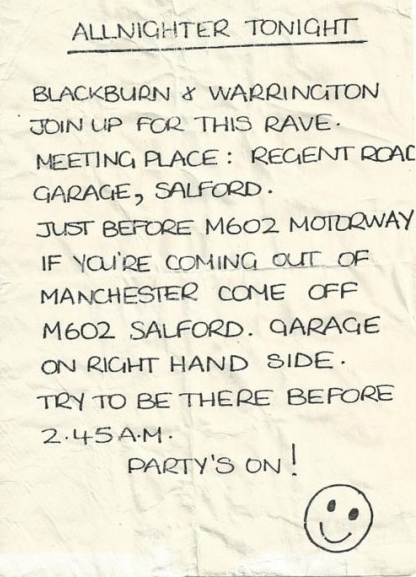 ALLNIGHTER TONIGHT
BLACKBURN & WARRINGTON
JOIN UP FOR THIS RAVE.
MEETING PLACE: REGENT ROAD
GARAGE, SALFORD.
JUST BEFORE M602 MOTORWAY
IF YOU'RE COMING OUT OF
MANCHESTER COME OFF
M602 SALFORD. GARAGE
ON RIGHT HAND SIDE.
TRY TO BE THERE BEFORE
2.45 A.M.
PARTY'S ON!